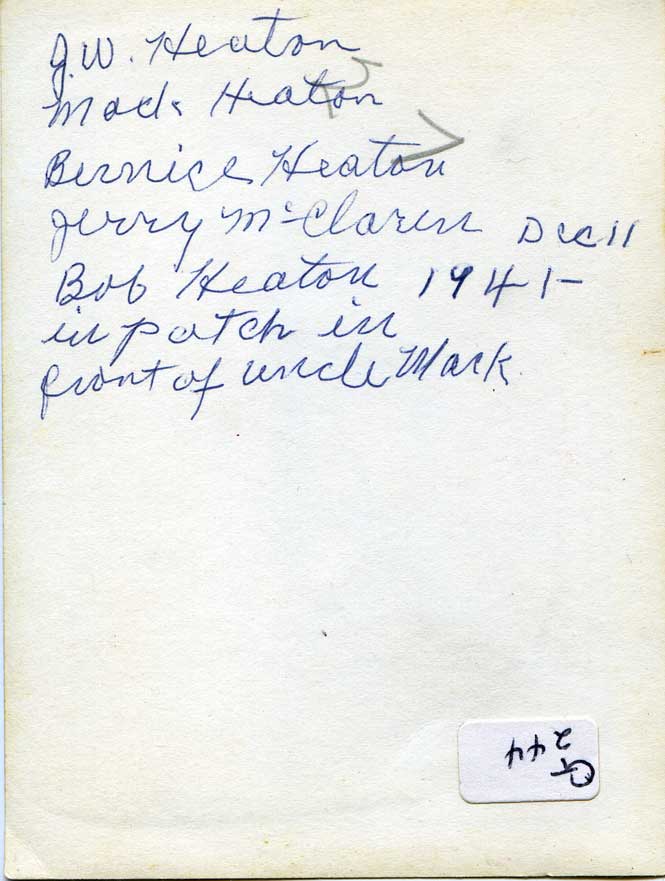 J.W. Heaton
Mack Heaton
Bernice Heaton
Jerry McClaren Dec 11
Bob Heaton 1941-
in patch in
front of uncle Mack
G
244